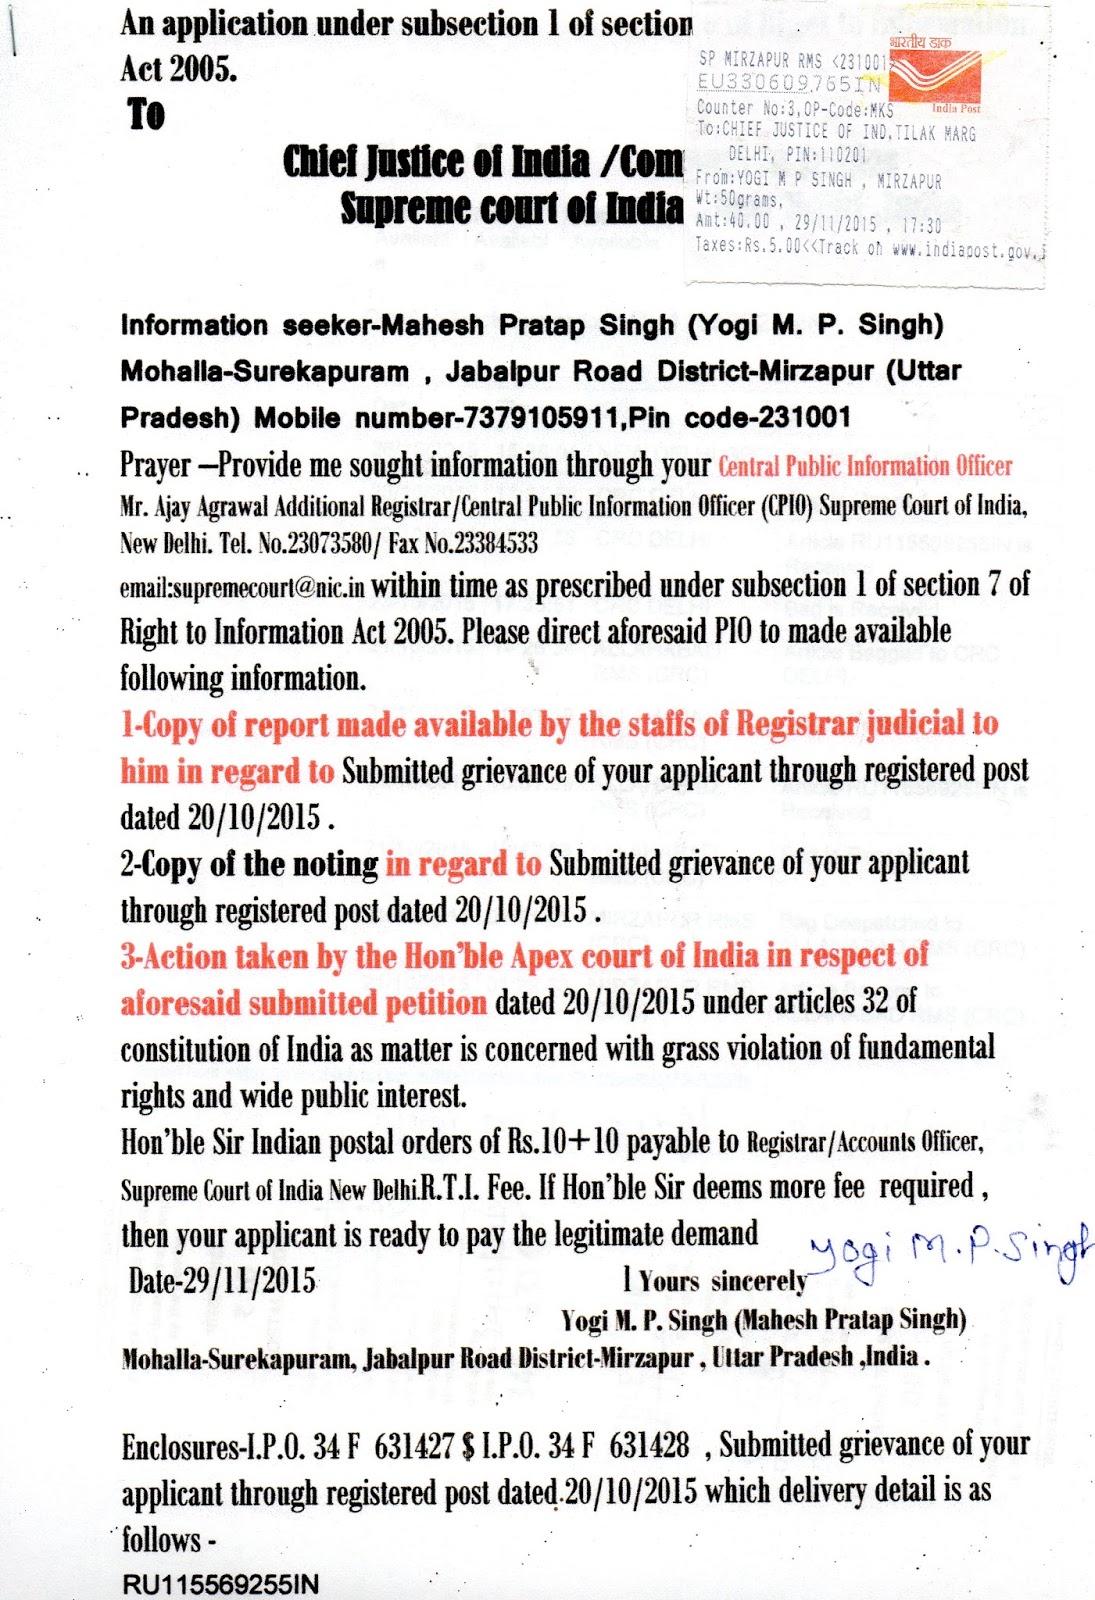 An application under subsection 1 of section
Act 2005.
To
Chief Justice of India /Com
Supreme court of India
भारतीय डाक
India Post
SP MIRZAPUR RMS <231001
EU330609765IN
Counter No:3,OP-Code:MKS
To:CHIEF JUSTICE OF IND,TILAK MARG
DELHI, PIN:110201
From:YOGI M P SINGH , MIRZAPUR
Wt:50grams,
Amt:40.00 , 29/11/2015 , 17:30
Taxes:Rs.5.00<<Track on www.indiapost.gov.i
Information seeker-Mahesh Pratap Singh (Yogi M. P. Singh)
Mohalla-Surekapuram , Jabalpur Road District-Mirzapur (Uttar
Pradesh) Mobile number-7379105911,Pin code-231001
Prayer –Provide me sought information through your Central Public Information Officer
Mr. Ajay Agrawal Additional Registrar/Central Public Information Officer (CPIO) Supreme Court of India,
New Delhi. Tel. No.23073580/ Fax No.23384533
email:supremecourt@nic.in within time as prescribed under subsection 1 of section 7 of
Right to Information Act 2005. Please direct aforesaid PIO to made available
following information.
1-Copy of report made available by the staffs of Registrar judicial to
him in regard to Submitted grievance of your applicant through registered post
dated 20/10/2015 .
2-Copy of the noting in regard to Submitted grievance of your applicant
through registered post dated 20/10/2015 .
3-Action taken by the Hon’ble Apex court of India in respect of
aforesaid submitted petition dated 20/10/2015 under articles 32 of
constitution of India as matter is concerned with grass violation of fundamental
rights and wide public interest.
Hon’ble Sir Indian postal orders of Rs.10+10 payable to Registrar/Accounts Officer,
Supreme Court of India New Delhi.R.T.I. Fee. If Hon’ble Sir deems more fee required ,
then your applicant is ready to pay the legitimate demand
Yogi M.P.Singh
Date-29/11/2015 Yours sincerely
Yogi M. P. Singh (Mahesh Pratap Singh)
Mohalla-Surekapuram, Jabalpur Road District-Mirzapur , Uttar Pradesh ,India .
Enclosures-I.P.O. 34 F 631427 $ I.P.O. 34 F 631428 , Submitted grievance of your
applicant through registered post dated.20/10/2015 which delivery detail is as
follows -
RU115569255IN